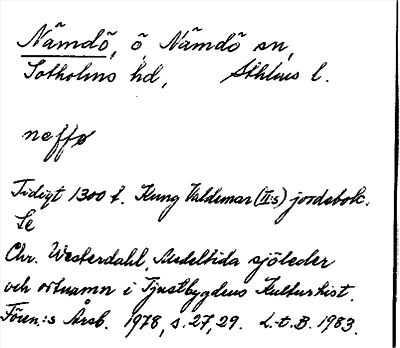 Nämdö, ö, Nämdö sn,
Sotholms hd, Sthlms l.
neffø
Tidigt 1300 t. Kung Valdemar (II:s) jordebok.
Se
Chr. Westerdahl, Medeltida sjöleder
och ortnamn i Tjustbygdens Kulturhist.
Fören:s Årsb. 1978, s. 27, 29. L.-t. B. 1983.